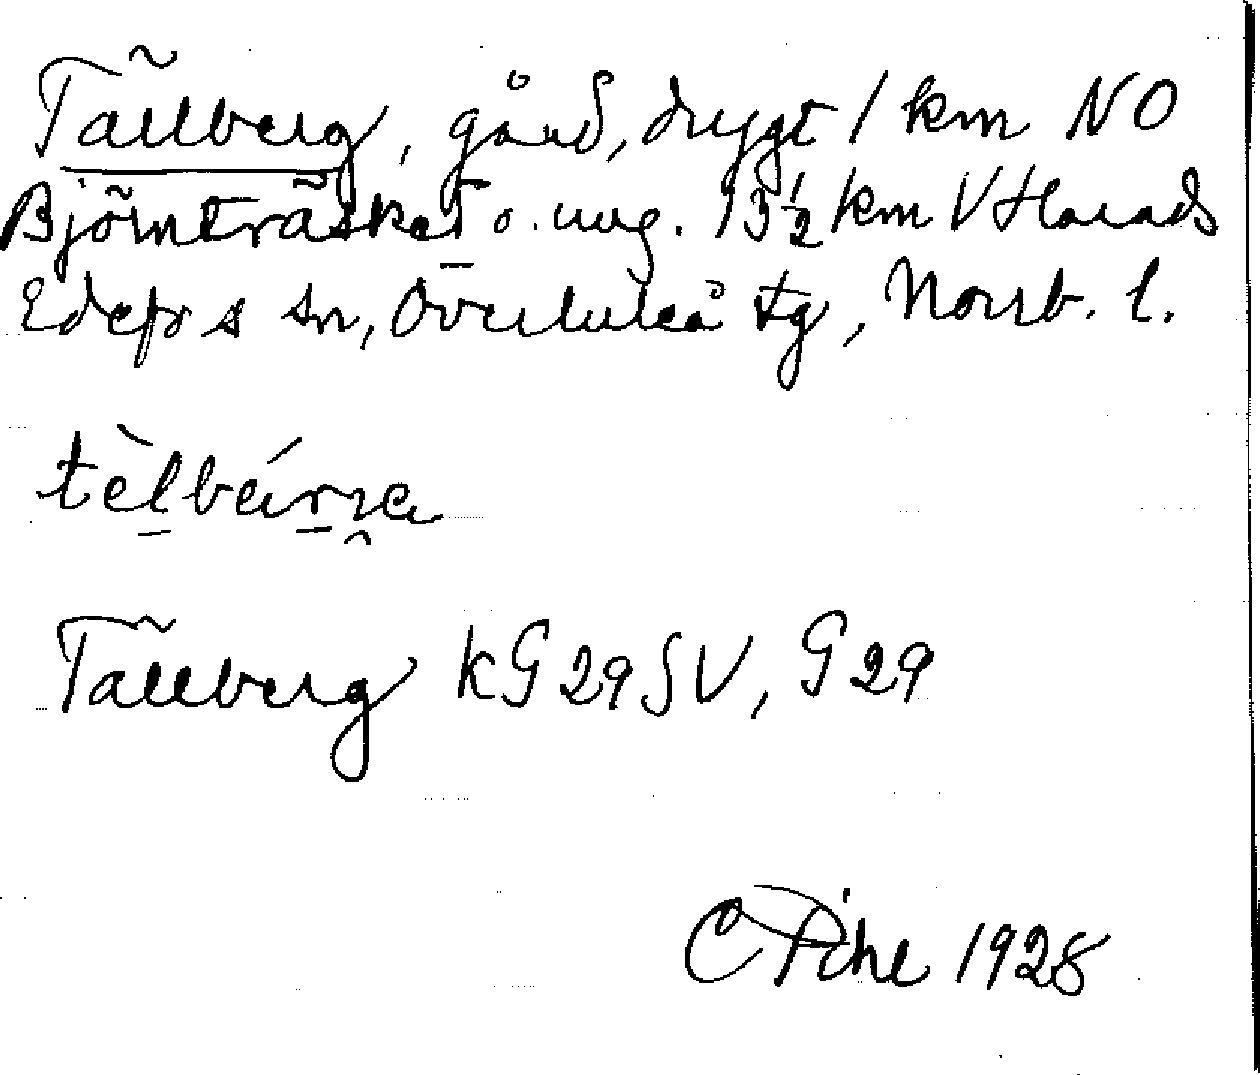 Tällberg, gård, drygt 1 km NO
Björnträsket o. ung. 13½ km V Harads
Edefors sn, Överluleå tg, Norrb. l.
tèlbárɳa
Tällberg kG 29 SV, G 29
C Pihl 1928